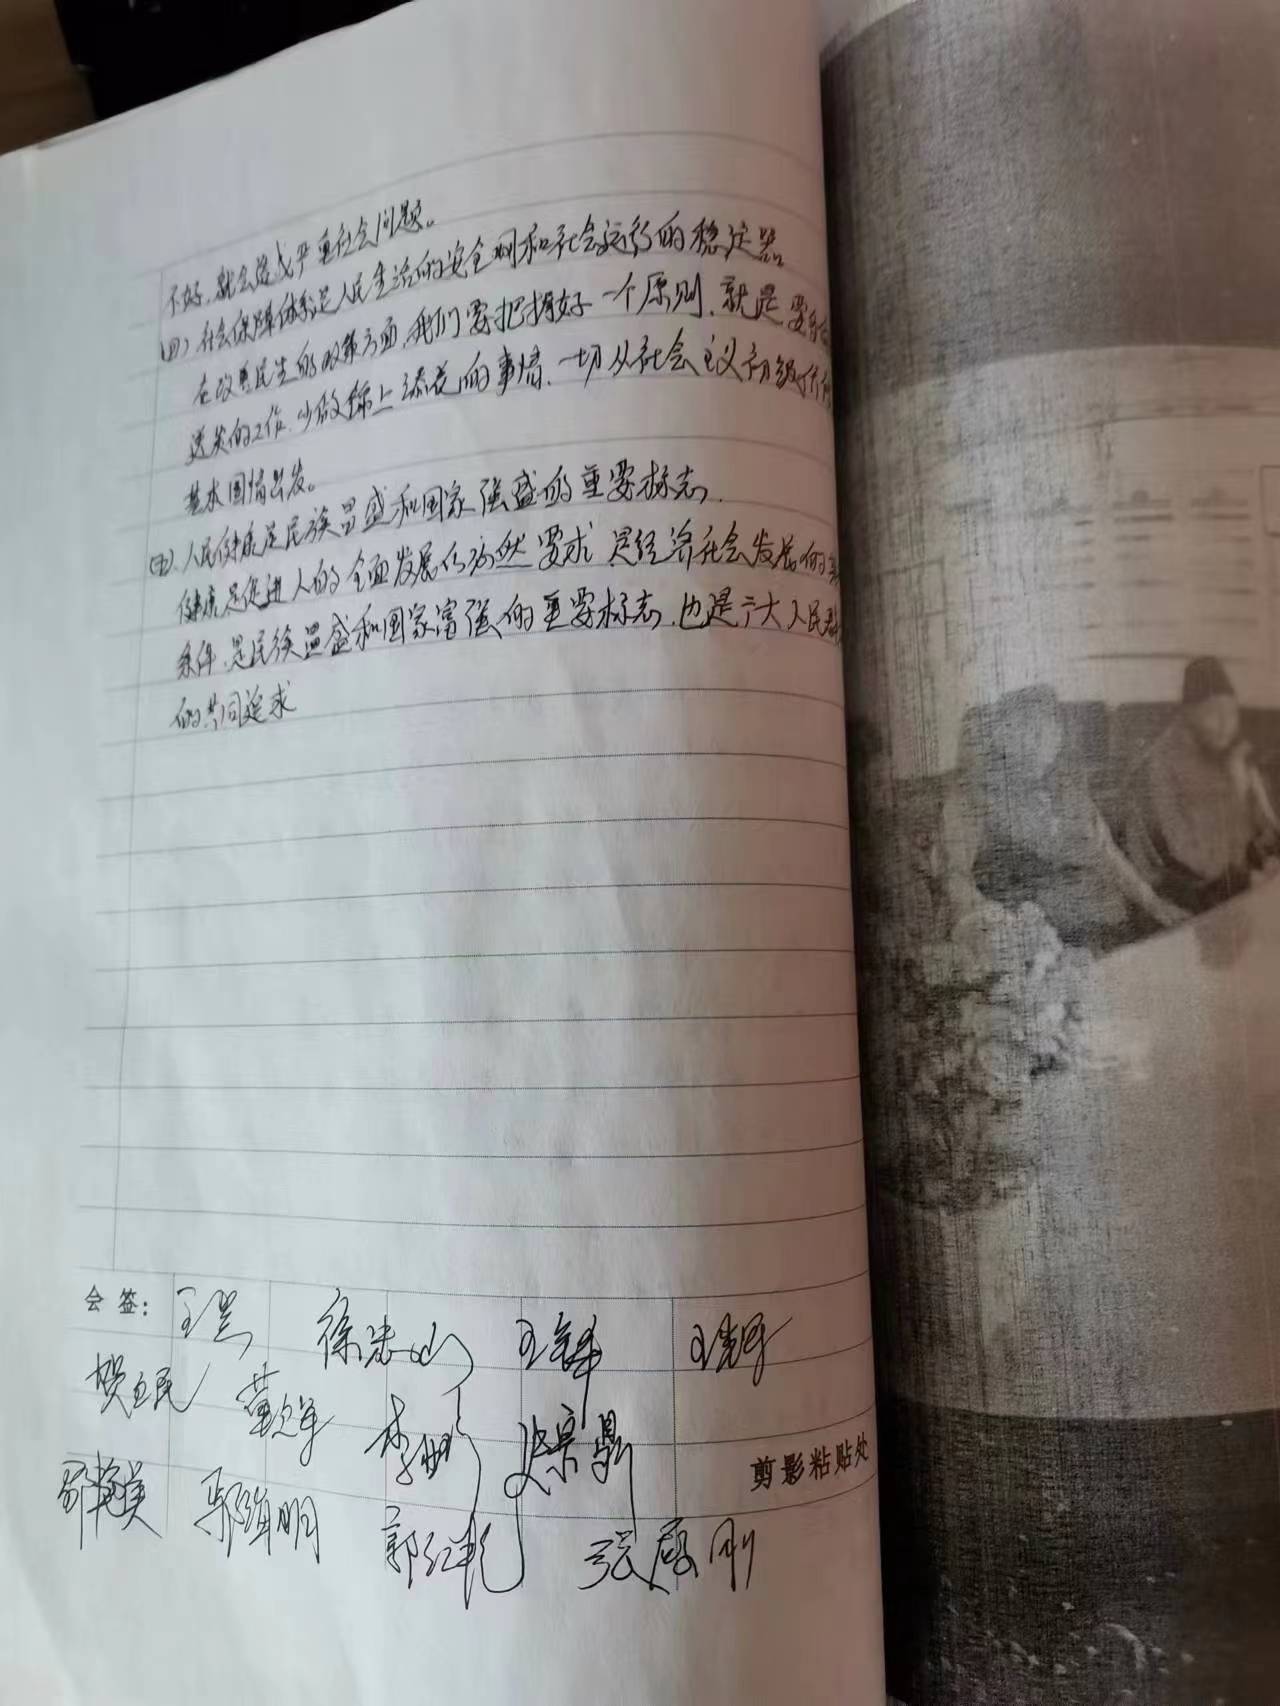 不好,就会造成严重社会问题。
(四)社会保障体系是人民生活的安全网和社会运行的稳定器
在改善民生的政策方面,我们要把握好一个原则,就是要
送炭的工作,少做锦上添花的事情,一切从社会主义初级阶段
基本国情出发。
(五)、人民健康是民族昌盛和国家强盛的重要标志.
健康是促进人的全面发展的必然要求 是经济社会发展的
条件,是民族昌盛和国家富强的重要标志,也是广大人民群
的共同追求
会签:
徐忠山 王锋
贺立民 董立军 李彬
郭维明 郭红乾 张愿刚
剪影粘贴处